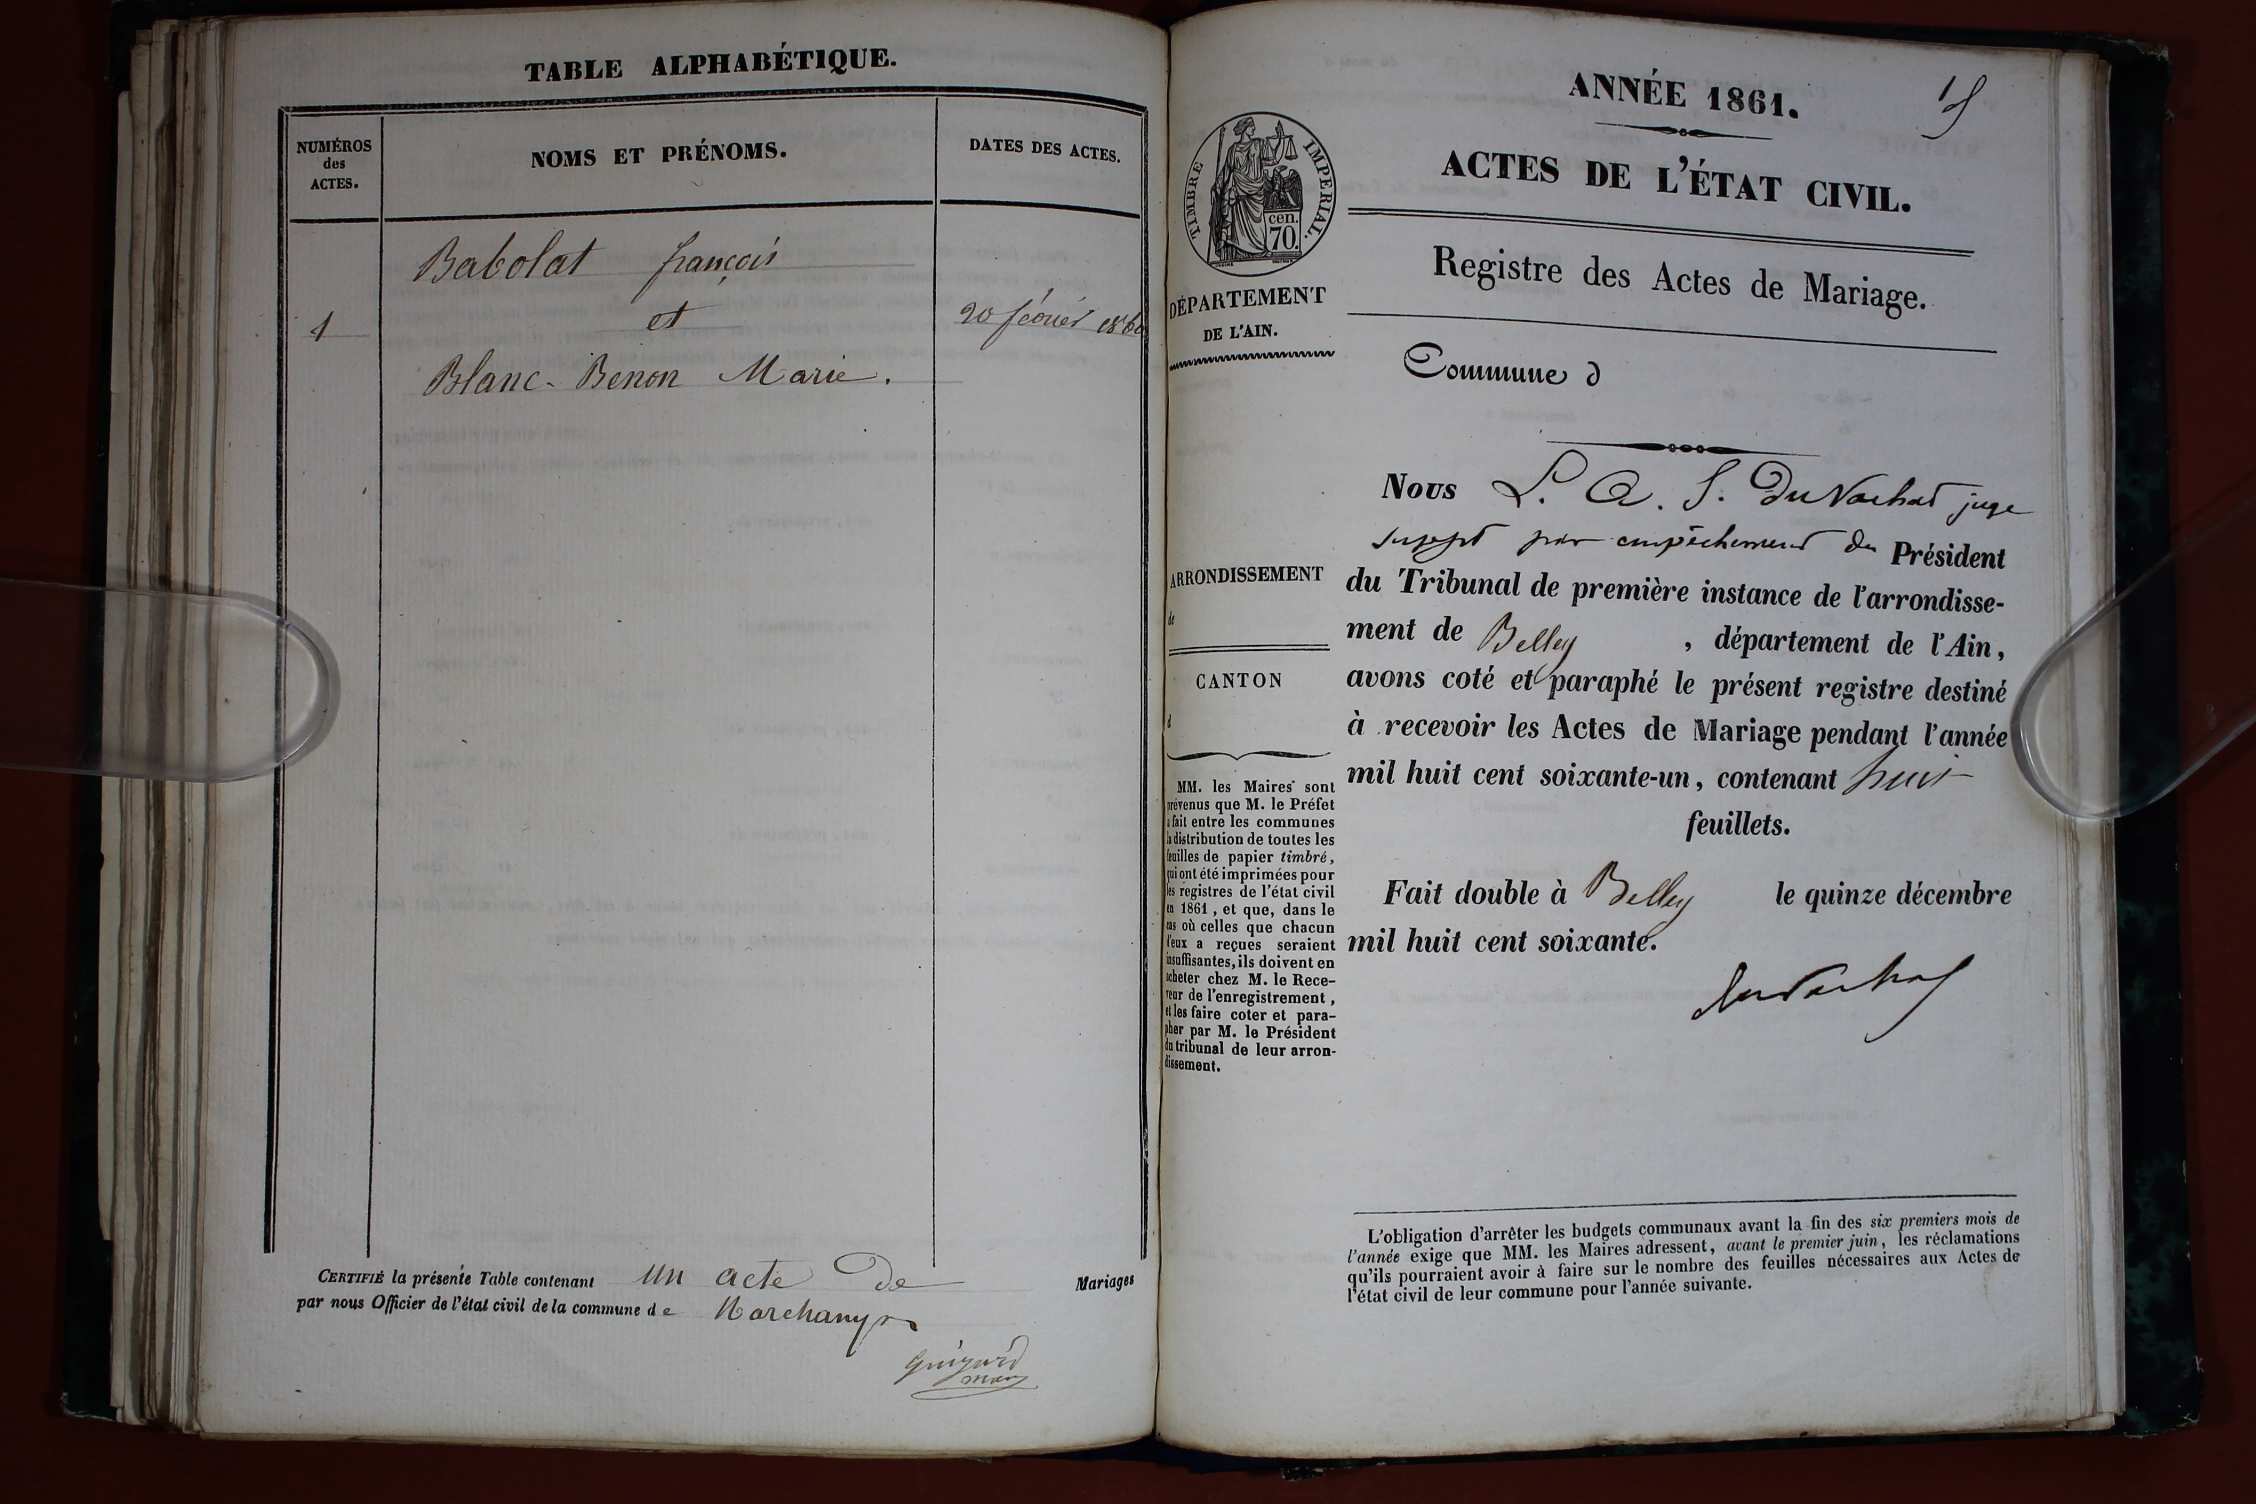 TABLE ALPHABÉTIQUE.
NUMÉROS
des
ACTES.
NOMS ET PRÉNOMS.
DATES DES ACTES.
Babolat françois
1
et
20 février 1860
Blanc-Benon Marie.
CERTIFIÉ la présente Table contenant un acte de Mariages
par nous Officier de l'état civil de la commune de
maire
ANNÉE 1861.
ACTES DE L'ÉTAT CIVIL.
TIMBRE IMPÉRIAL.
cen.
70.
DÉPARTEMENT
DE L'AIN.
Registre des Actes de Mariage.
Commune d
ARRONDISSEMENT
de
CANTON
d
MM. les Maires sont
prévenus que M. le Préfet
a fait entre les communes
la distribution de toutes les
feuilles de papier timbré,
qui ont été imprimées pour
les registres de l'état civil
en 1861, et que, dans le
cas où celles que chacun
d'eux a reçues seraient
insuffisantes, ils doivent en
acheter chez M. le Rece-
veur de l'enregistrement,
et les faire coter et para-
pher par M. le Président
du tribunal de leur arron-
dissement.
Nous L. A. S. Du Vachat juge
par empêchement du Président
du Tribunal de première instance de l'arrondisse-
ment de Belley, département de l'Ain,
avons coté et paraphé le présent registre destiné
à recevoir les Actes de Mariage pendant l'année
mil huit cent soixante-un, contenant huit
feuillets.
Fait double à Belley le quinze décembre
mil huit cent soixante.
DuVachat
L'obligation d'arrêter les budgets communaux avant la fin des six premiers mois de
l'année exige que MM. les Maires adressent, avant le premier juin, les réclamations
qu'ils pourraient avoir à faire sur le nombre des feuilles nécessaires aux Actes de
l'état civil de leur commune pour l'année suivante.